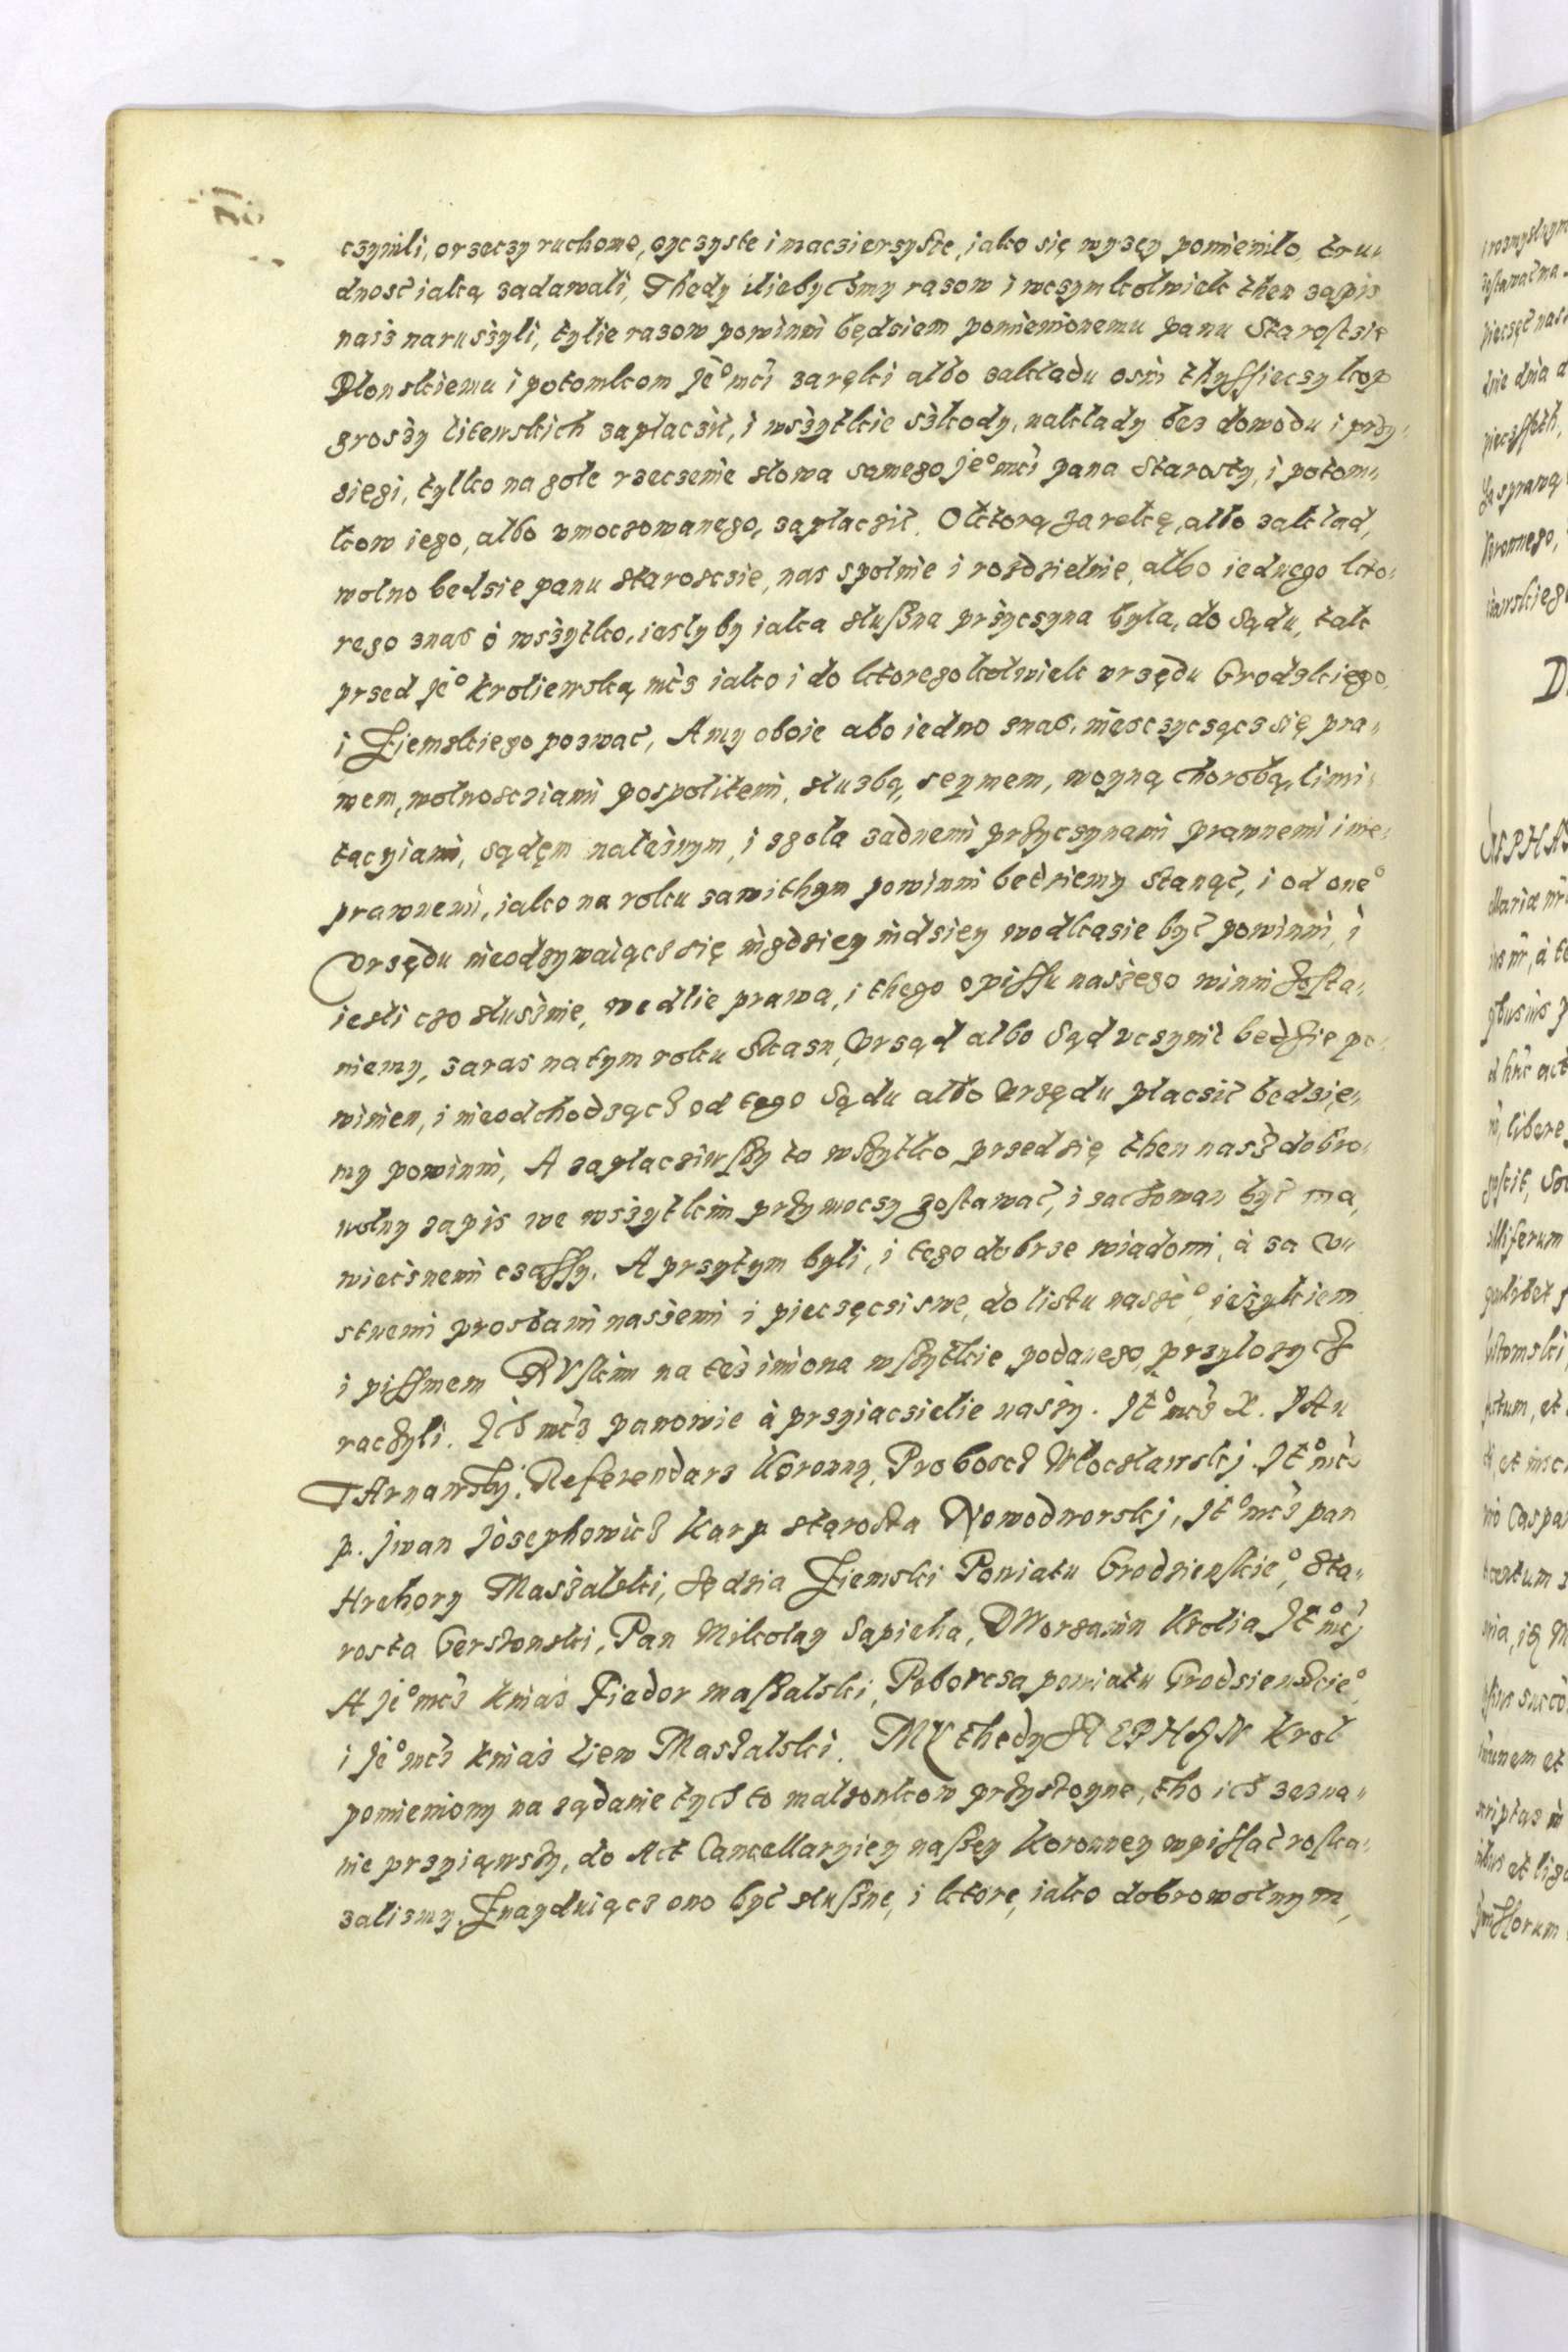 czynili, orzeczy ruchome, oyczyste i maczierzyste, iako się wyzęy pomieniło, tru„
dnosć iaką zadawali, Thedy iliebychmy razow i wczymkolwiek then zapis
nasz naruszyli, tylie razow powinni będziem pomienionemu panu Starosczie
Płonskiemu i potomkom Jeo mći zaręki albo zakładu osm thyssieczy kop
groszy litewskich zapłaczić, i wszytkie szkody, nakłady bez dowodu i przy„
sięgi, tylko na gołe rzeczenie słowa samego Jeo mći pana Starosty, i potom„
kow iego, albo vmoczowanego, zapłaczić. O ktorą zarękę, albo zakład,
wolno bedzie panu starosczie, nas społnie i rozdzielnie, albo iednego kto„
rego znas o wszytko, iasly by iaka słuszna przyczyna była, do Sądu, tak
przed Jeo kroliewską mćz iako i do ktoregokolwiek vrzędu Grodzkiego,
i Ziemskiego pozwać, A my oboie abo iedno znas, niesczyczącz się pra„
wem, wolnoscziami pospolitemi, służbą, seymem, woyną chorobą, limi„
tacyiami, sądęm nałeznym, i zgoła żadnemi przyczynami prawnemi i nie„
prawnemi, iako na roku zawithym powinni bedziemy stanąć, i od oneo
Vrzędu nieodzywaiącz się nigdziey indziey vrodkazie być powinni, i
iesli czo słusznie, wedlie prawa, i thego opissu naszego winni zosta„
niemy, zaraz natym roku skazn, Vrząd albo Sąd vczynić bedzie po„
winien, i nieodchodząch od tego Sądu albo Vrzędu płaczić będzię„
my powinni, A zapłacziwszy to wszytko, przedsię then nasz dobro„
wolny zapis we wszytkim przy moczy zostawać, i zachowan być ma,
wiecznemi czassy. A przytym byli, i tego dobrze wiadomi, à za v„
stnemi prosbami naszemi i pieczęczi swe, do listu naszeo, ięzykiem
i pissmem RVskim na też imiona wszytkie podanego, przyłozych
raczyli. Ich mćz panowie à przyiaczielie naszy. Jeo mćz X. JAn
TArnawsky, Referendarz Koronny, Proboscz Włocławski. Jeo mćz
p. Jwan Josephowicz Karp starosta Nowodworski, Jeo mćz pan
Hrehory Maszalski, Sędzia Ziemski Powiatu Grodzienskieo, sta„
rosta Gerszonski, Pan Mikołay Sapieha, DWorzanin Krolia Jeo mći
A Jeo mćz kniaz Fiedor maszalski, Poborcza powiatu Grodzienskieo,
i Jeo mćz kniaz Liew Maszalski. MY thedy STEPHAN Krol
pomieniony na ządanie tych to małzonkow przystoyne, tho ich zezna„
nie przyiąwszy, do Act Cancellaryiey naszey Koronney wpissać roska„
zalismy, Znayduiącz ono być słuszne, i ktore, iako dobrowolnym,